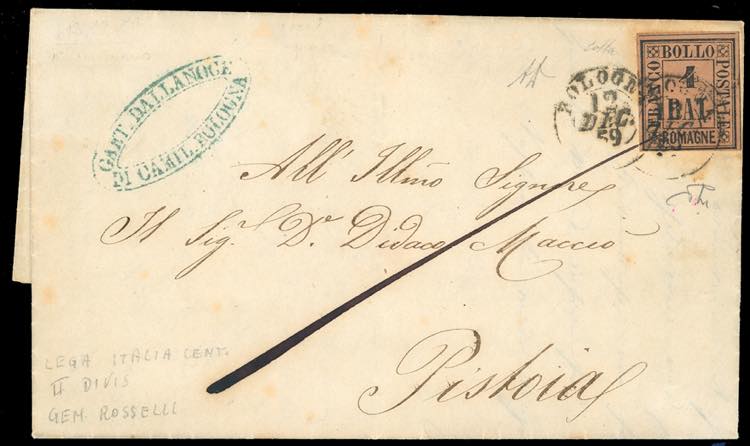 GAET. DALLANOCE
DI CAMIL. BOLOGNA
BOLOGNA
12
DEC.
59
FRANCO
BOLLO
POSTALE
4
BAI
ROMAGNE
All' Illmo Signre
Il Sigr Dr Didaco Macciò
Pistoia
LEGA ITALIA CENT.
II DIVIS
GEM. ROSSELLI